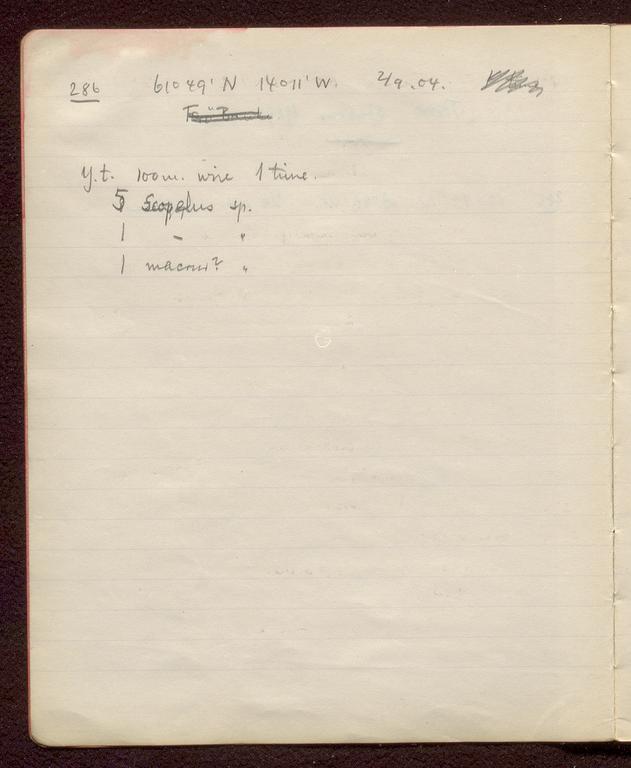 286 61° 49' N 14° 11' W. 2/9.04.
Y.t. 100 m. wire 1 time.
5 Scopelus sp.
1 — "
1 macrur? "